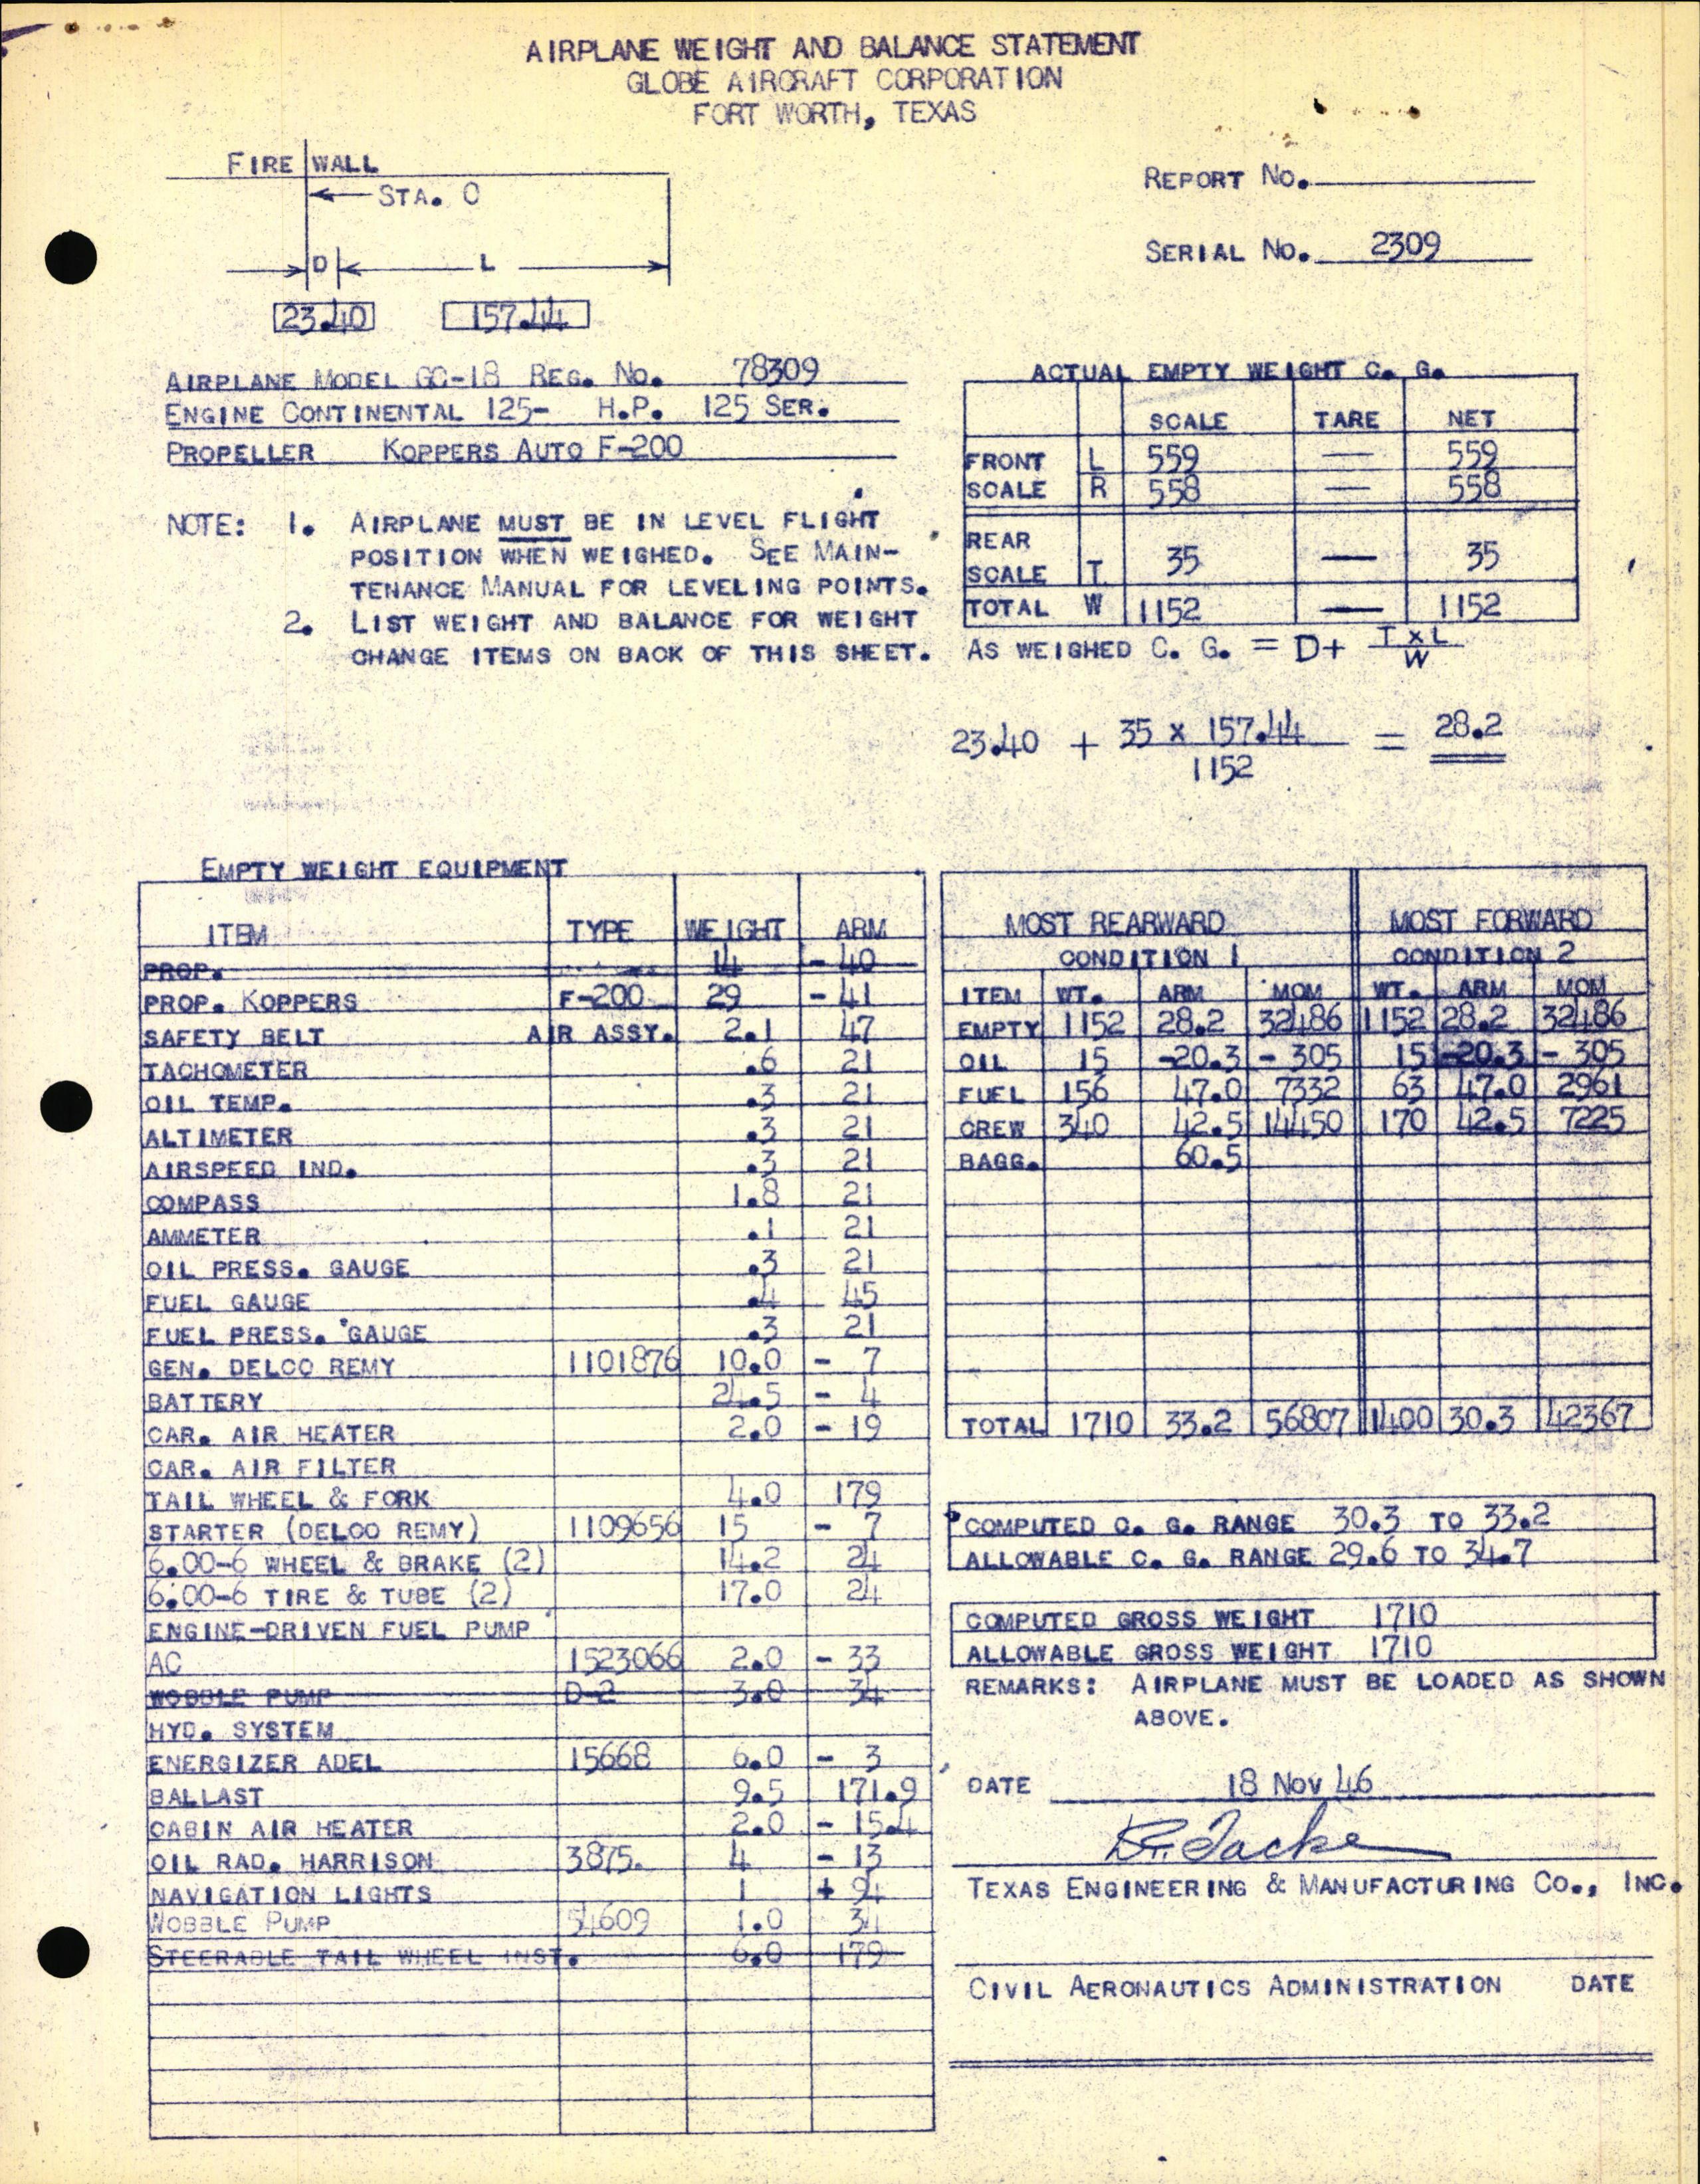 AIRPLANE WEIGHT AND BALANCE STATEMENT
GLOBE AIRCRAFT CORPORATION
FORT WORTH, TEXAS
FIRE WALL
STA. 0
D L
23.40 157.44
REPORT NO.
SERIAL NO. 2309
AIRPLANE MODEL GC-1B REG. NO. 78309
ENGINE CONTINENTAL 125- H.P. 125 SER.
PROPELLER KOPPERS AUTO F-200
NOTE: 1. AIRPLANE MUST BE IN LEVEL FLIGHT
POSITION WHEN WEIGHED. SEE MAIN-
TENANCE MANUAL FOR LEVELING POINTS.
2. LIST WEIGHT AND BALANCE FOR WEIGHT
CHANGE ITEMS ON BACK OF THIS SHEET.
ACTUAL EMPTY WEIGHT C. G.
SCALE TARE NET
FRONT L 559 — 559
SCALE R 558 — 558
REAR
SCALE T 35 — 35
TOTAL W 1152 — 1152
AS WEIGHED C. G. = D+ T x L
W
23.40 + 35 x 157.44 = 28.2
1152
EMPTY WEIGHT EQUIPMENT
ITEM TYPE WEIGHT ARM
PROP. 14 - 40
PROP. KOPPERS F-200 29 - 41
SAFETY BELT AIR ASSY. 2.1 47
TACHOMETER .6 21
OIL TEMP. .3 21
ALTIMETER .3 21
AIRSPEED IND. .3 21
COMPASS 1.8 21
AMMETER .1 21
OIL PRESS. GAUGE .3 21
FUEL GAUGE .4 45
FUEL PRESS. GAUGE .3 21
GEN. DELCO REMY 1101876 10.0 - 7
BATTERY 24.5 - 4
CAR. AIR HEATER 2.0 - 19
CAR. AIR FILTER
TAIL WHEEL & FORK 4.0 179
STARTER (DELCO REMY) 1109656 15 - 7
6.00-6 WHEEL & BRAKE (2) 14.2 24
6.00-6 TIRE & TUBE (2) 17.0 24
ENGINE-DRIVEN FUEL PUMP
AC 1523066 2.0 - 33
WOBBLE PUMP D-2 3.0 34
HYD. SYSTEM
ENERGIZER ADEL 15668 6.0 - 3
BALLAST 9.5 171.9
CABIN AIR HEATER 2.0 - 15.4
OIL RAD. HARRISON 3875. 4 - 13
NAVIGATION LIGHTS 1 + 94
WOBBLE PUMP 54609 1.0 34
STEERABLE TAIL WHEEL INST. 6.0 179
MOST REARWARD MOST FORWARD
CONDITION 1 CONDITION 2
ITEM WT. ARM MOM WT. ARM MOM
EMPTY 1152 28.2 32486 1152 28.2 32486
OIL 15 -20.3 - 305 15 -20.3 - 305
FUEL 156 47.0 7332 63 47.0 2961
CREW 340 42.5 14450 170 42.5 7225
BAGG. 60.5
TOTAL 1710 33.2 56807 1400 30.3 42367
COMPUTED C. G. RANGE 30.3 TO 33.2
ALLOWABLE C. G. RANGE 29.6 TO 34.7
COMPUTED GROSS WEIGHT 1710
ALLOWABLE GROSS WEIGHT 1710
REMARKS: AIRPLANE MUST BE LOADED AS SHOWN
ABOVE.
DATE 18 NOV 46
TEXAS ENGINEERING & MANUFACTURING CO., INC.
CIVIL AERONAUTICS ADMINISTRATION DATE